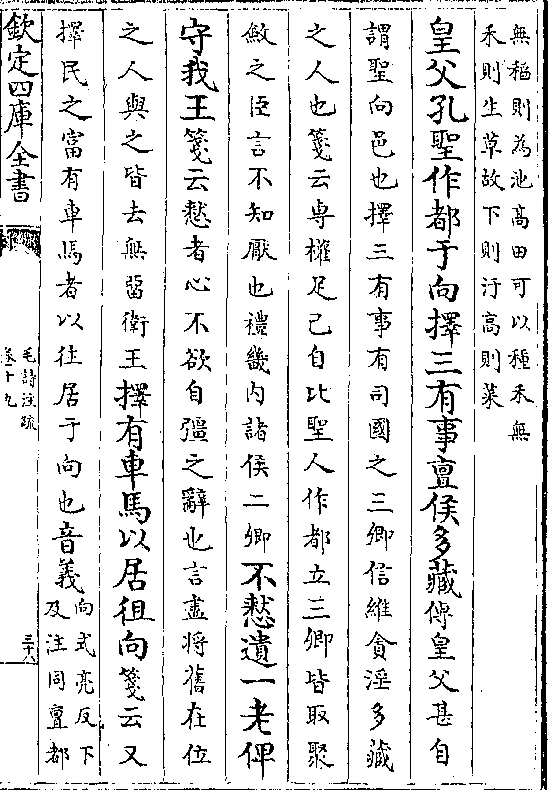 無稻則為池高田可以種禾無
禾則生草故下則汙高則萊
皇父孔聖作都于向擇三有事亶侯多藏傳皇父甚自
謂聖向邑也擇三有事有司國之三卿信維貪淫多藏
之人也箋云專權足己自比聖人作都立三卿皆取聚
斂之臣言不知厭也禮畿內諸侯二卿不憖遺一老俾
守我王箋云憖者心不欲自彊之辭也言盡將舊在位
之人與之皆去無留衛王擇有車馬以居徂向箋云又
擇民之富有車馬者以往居于向也音義
向式亮反下
及注同亶都
欽定四庫全書
毛詩注疏
卷十九
三十八